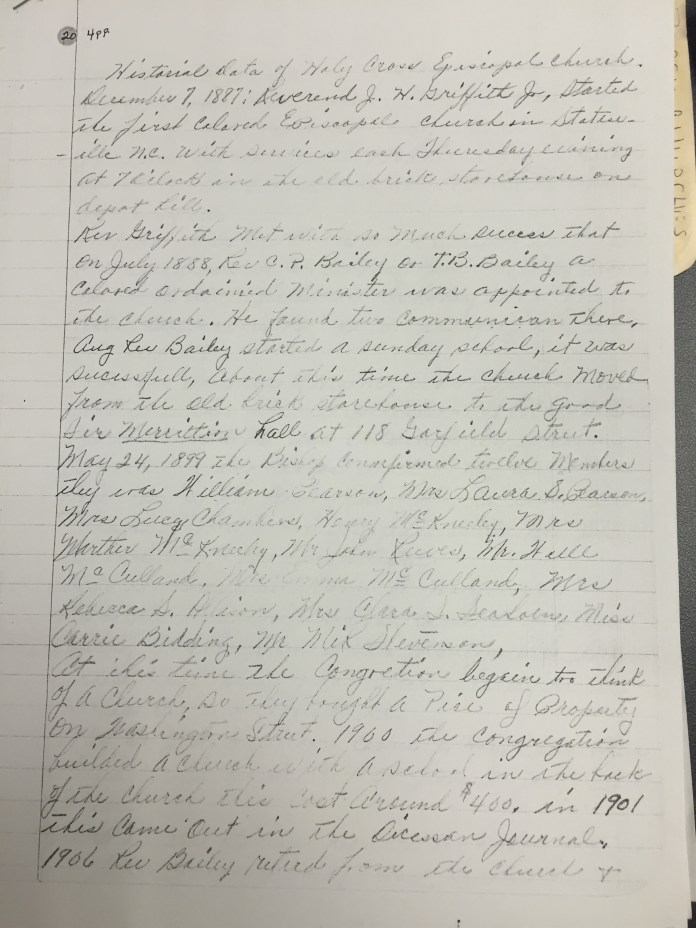 20 4PP
Historial Data of Holy Cross Episcopal Church.
December 7, 1887: Reverend J. H. Griffith Jr, Started
the first Colored Episcopale church in States-
-ille N.C. With services each Thursday evining
at 7 O'clock in the old brick storehouse on
depot hill.
Rev Griffith Met with so Much success that
On July 1888, Rev C. P. Bailey or T.B. Bailey a
Colored ordainied Minister was appointed to
the church. He found two Communican there,
Aug Rev Bailey started a sunday school, it was
sucessfull, about this time the church Moved
from the old brick storehouse to the Good
Merrittion hall at 118 Garfield Street.
May 24, 1899 the Bishop Connfirmed twelve Members
they was William Pearson, Mrs Laura S. Pearson,
Mrs Lucy Chambers, Henry McKneely, Mrs
McKneely, Mr John Reeves, Mr. Will
McCulland, Mrs Emma McCulland, Mrs
Rebecca S. Allison, Mrs Clara S. Miss
Carrie Bidding, Mr Mix Stevenson,
At this time the Congretion begain too think
Of a Church, so they bought a Pise of Property
On Washington Street. 1900 the Congregation
builded a church with a school in the back
of the church this Cost Around $400. in 1901
this Came Out in the Dicessan Journal.
1906 Rev Bailey retired from the church &